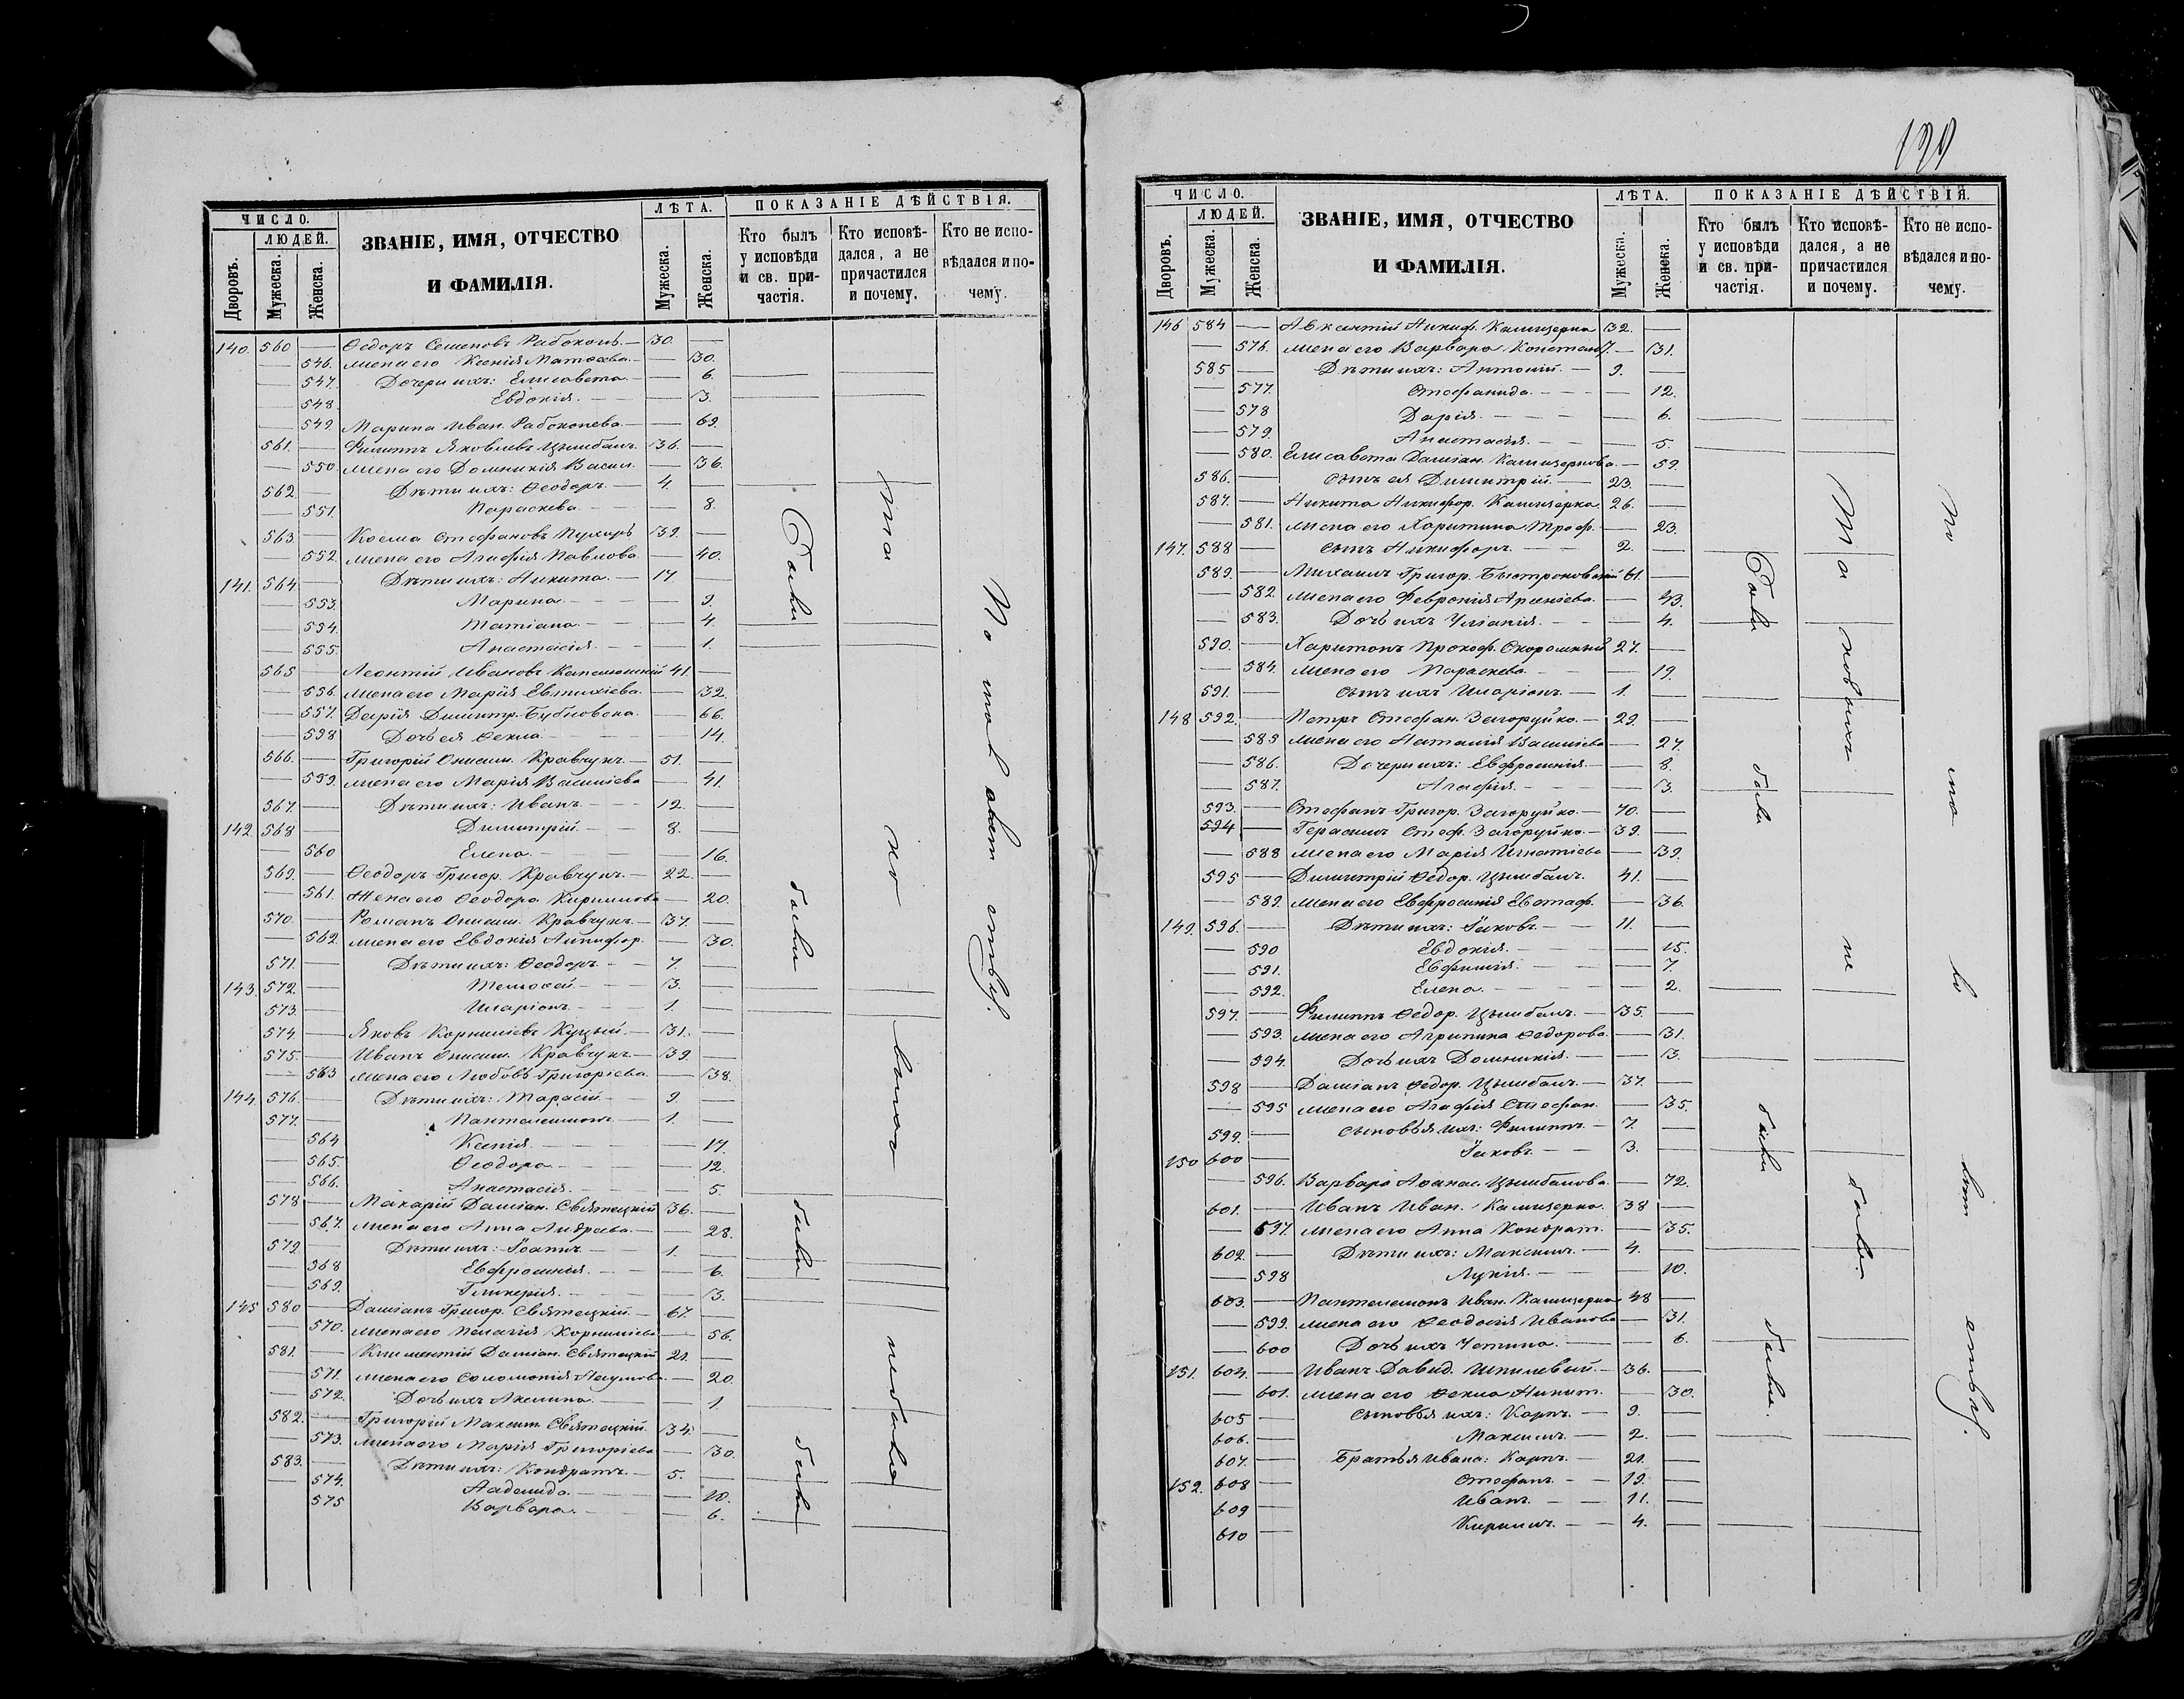 ЧИСЛО. ЛѢТА. ПОКАЗАНІЕ ДѢЙСТВІЯ.
Дворовъ. ЛЮДЕЙ. Мужеска. Женска. ЗВАНІЕ, ИМЯ, ОТЧЕСТВО И ФАМИЛІЯ. Мужеска. Женска. Кто былъ у исповѣди и св. причастія. Кто исповѣдался, а не причастился и почему. Кто не исповѣдался и почему.
140. 560 — Ѳедоръ Семеновъ Рабоконь — 30. —
— 546. жена его Ксенія Матѳеева — 30.
— 547. Дочери ихъ: Елисавета — 6.
— 548. Евдокія — 3.
— 549. Марина Иван. Рабоконева — 69.
561. — Филиппъ Яковлевъ Цымбалъ 36. —
— 550. жена его Домникія Васил. — 36.
562. — Дѣти ихъ: Ѳеодоръ — 4. —
— 551. Параскева — 8.
563. — Косма Стефановъ 39. —
— 552. жена его Агафія Павлова — 40.
141. 564. — Дѣти ихъ: Никита — 17. —
— 553. Марина — 9.
— 554. Татіана — 4.
— 555. Анастасія — 1.
565 — Леонтій Ивановъ 41. —
— 556. жена его Марія Евтихіева — 32.
— 557. Дарія Димитр. Бубновска — 66.
— 558 Дочь ея Ѳекла — 14.
566. — Григорій Онисим. Кравчукъ — 51. —
— 559. жена его Марія Василіева — 41.
567. — Дѣти ихъ: Иванъ — 12. —
142. 568 — Димитрій — 8. —
— 560 Елена — 16.
569. — Ѳеодоръ Григор. Кравчукъ — 22. —
— 561. Жена его Ѳеодора Кириллова — 20.
570. — Романъ Онисим. Кравчукъ — 37. —
— 562. жена его Евдокія Никифор. — 30.
571. — Дѣти ихъ: Ѳеодоръ — 7. —
143. 572. — Тимоѳей — 3. —
573. — Иларіонъ — 1. —
574. — Яковъ Корниліевъ Куцый — 31. —
575. — Иванъ Онисим. Кравчукъ — 39. —
— 563 жена его Любовь Григоріева — 38.
144. 576. — Дѣти ихъ: Тарасій — 9. —
577. — Пантелеимонъ — 1. —
— 564 Ксенія — 17.
— 565. Ѳеодора — 12.
— 566. Анастасія — 5.
578 — Макарій Даміан. Святецкій 36. —
— 567. жена его Анна Андреева — 28.
579. — Дѣти ихъ: Іоаннъ — 1. —
— 568 Евфросинія — 6.
— 569. Гликерія — 3.
145 580 — Даміанъ Григор. Святецкій — 67. —
— 570. жена его Пелагія Корниліева — 56.
581. — Климентій Даміан. Святецкій 21. —
— 571. жена его Соломонія Наумова — 20.
— 572. Дочь ихъ Акилина — 1.
582. — Григорій Максим. Святецкій 34. —
— 573. жена его Марія Григоріева — 30.
583. — Дѣти ихъ: Кондратъ — 5. —
— 574. — 10.
— 575 Варвара — 6.
Были были были были
Та ко вы хъ не было
По той ст.
ЧИСЛО. ЛѢТА. ПОКАЗАНІЕ ДѢЙСТВІЯ.
Дворовъ. ЛЮДЕЙ. Мужеска. Женска. ЗВАНІЕ, ИМЯ, ОТЧЕСТВО И ФАМИЛІЯ. Мужеска. Женска. Кто былъ у исповѣди и св. причастія. Кто исповѣдался, а не причастился и почему. Кто не исповѣдался и почему.
146 584 — Авксентій Никиф. 32. —
— 576. жена его Варвара Констант. — 31.
585 — Дѣти ихъ: Антоній — 9. —
— 577. Стефанида — 12.
— 578 Дарія — 6.
— 579. Анастасія — 5.
— 580. Елисавета Даміан. — 59.
586. — сынъ ея Димитрій — 23. —
587. — Никита Никифор. 26. —
— 581. жена его Харитина Троф. — 23.
147. 588 — сынъ Никифоръ — 2. —
589. — Михаилъ Григор. Быстроновскій 61. —
— 582. жена его Февронія Арсеніева — 43.
— 583. Дочь ихъ Уліанія — 4.
590. — Харитонъ Прокоф. Скоромный 27. —
— 584. жена его Параскева — 19.
591. — сынъ ихъ Иларіонъ — 1. —
148 592. — Петръ Стефан. Загоруйко — 29. —
— 585 жена его Наталія Василіева — 27.
— 586. Дочери ихъ: Евфросинія — 8.
— 587. Агафія — 3.
593. — Стефанъ Григор. Загоруйко — 70. —
594 — Герасимъ Стеф. Загоруйко — 39. —
— 588 жена его Марія Игнатіева — 39.
595 — Димитрій Ѳедор. Цымбалъ 41. —
— 589. жена его Евфросинія Евстаф. — 36.
149. 596. — Дѣти ихъ: Іаковъ — 11. —
— 590 Евдокія — 15.
— 591. Евфимія — 7.
— 592. Елена — 2.
597. — Филиппъ Ѳедор. Цымбалъ — 35. —
— 593. жена его Агрипина Ѳедорова — 31.
— 594. Дочь ихъ Домникія — 3.
598 — Даміанъ Ѳедор. Цымбалъ — 37. —
— 595 жена его Агафія Стефан. — 35.
599. — сыновья ихъ: Филиппъ — 7. —
150 600 — Іаковъ — 3. —
— 596. Варвара Аѳанас. Цымбалова — 72.
601. — Иванъ Иван. 38 —
— 597. жена его Анна Кондрат. — 35.
602. — Дѣти ихъ: Максимъ — 4. —
— 598 Лукія — 10.
603. — Пантелеимонъ Иван. 48 —
— 599. жена его Ѳеодосія Иванова — 31.
— 600 Дочь ихъ Устина — 6.
151. 604. — Иванъ Давид. Шпилевый — 36. —
— 601. жена его Ѳекла Никит. — 30.
605 — сыновья ихъ: Карпъ — 9. —
606. — Максимъ — 2. —
607. — Братья Ивана: Карпъ — 21. —
152. 608 — Стефанъ — 19. —
609 — Иванъ — 11. —
610 — Кириллъ — 4. —
Были были были были.
Та ковыхъ не было